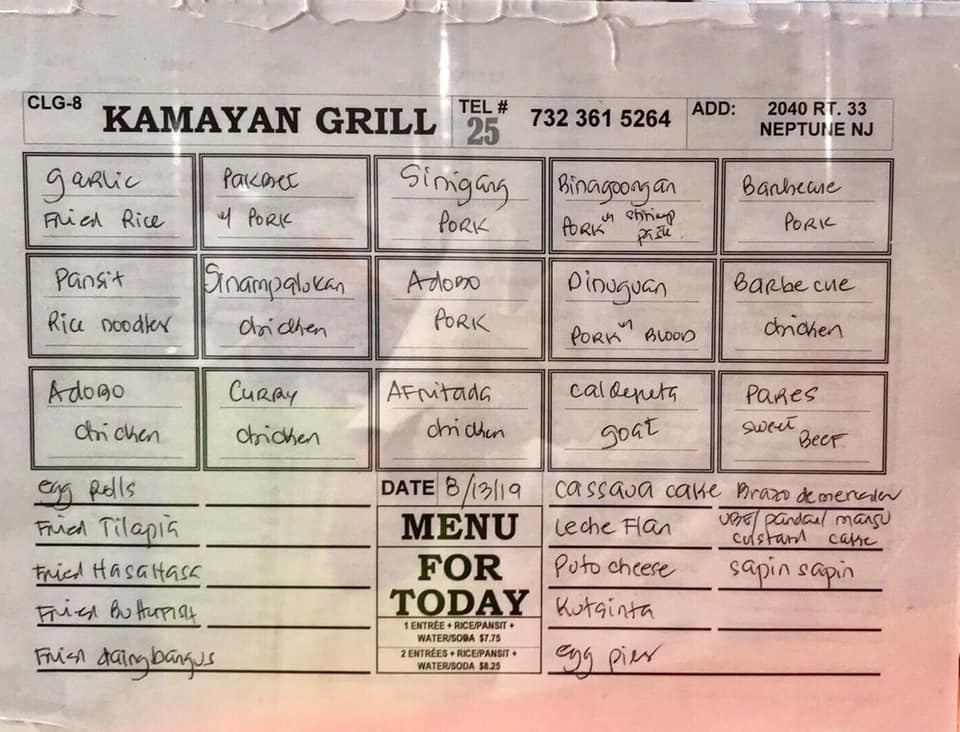 CLG-8
KAMAYAN GRILL
TEL #
25
732 361 5264
ADD:
2040 RT. 33
NEPTUNE NJ
garlic
Fried Rice
Pakbet
w/ PORK
Sinigang
PORK
Binagoongan
PORK w/ shrimp
paste
Barbecue
PORK
Pansit
Rice noodles
Sinampalukan
chicken
Adobo
PORK
Dinuguan
PORK w/ BLOOD
Barbecue
chicken
Adobo
chicken
CURRY
chicken
AFritada
chicken
caldereta
goat
PARES
sweet
BEEF
egg rolls
Fried Tilapia
Fried HasaHasa
Fried Butterfish
Fried daing bangus
DATE 8/13/19
MENU
FOR
TODAY
1 ENTRÉE + RICE/PANSIT +
WATER/SODA $7.75
2 ENTRÉES + RICE/PANSIT +
WATER/SODA $8.25
cassava cake
Leche Flan
Puto cheese
Kutsinta
egg pies
Brazo de mercedes
UBE/pandan/mango
custard cake
sapin sapin